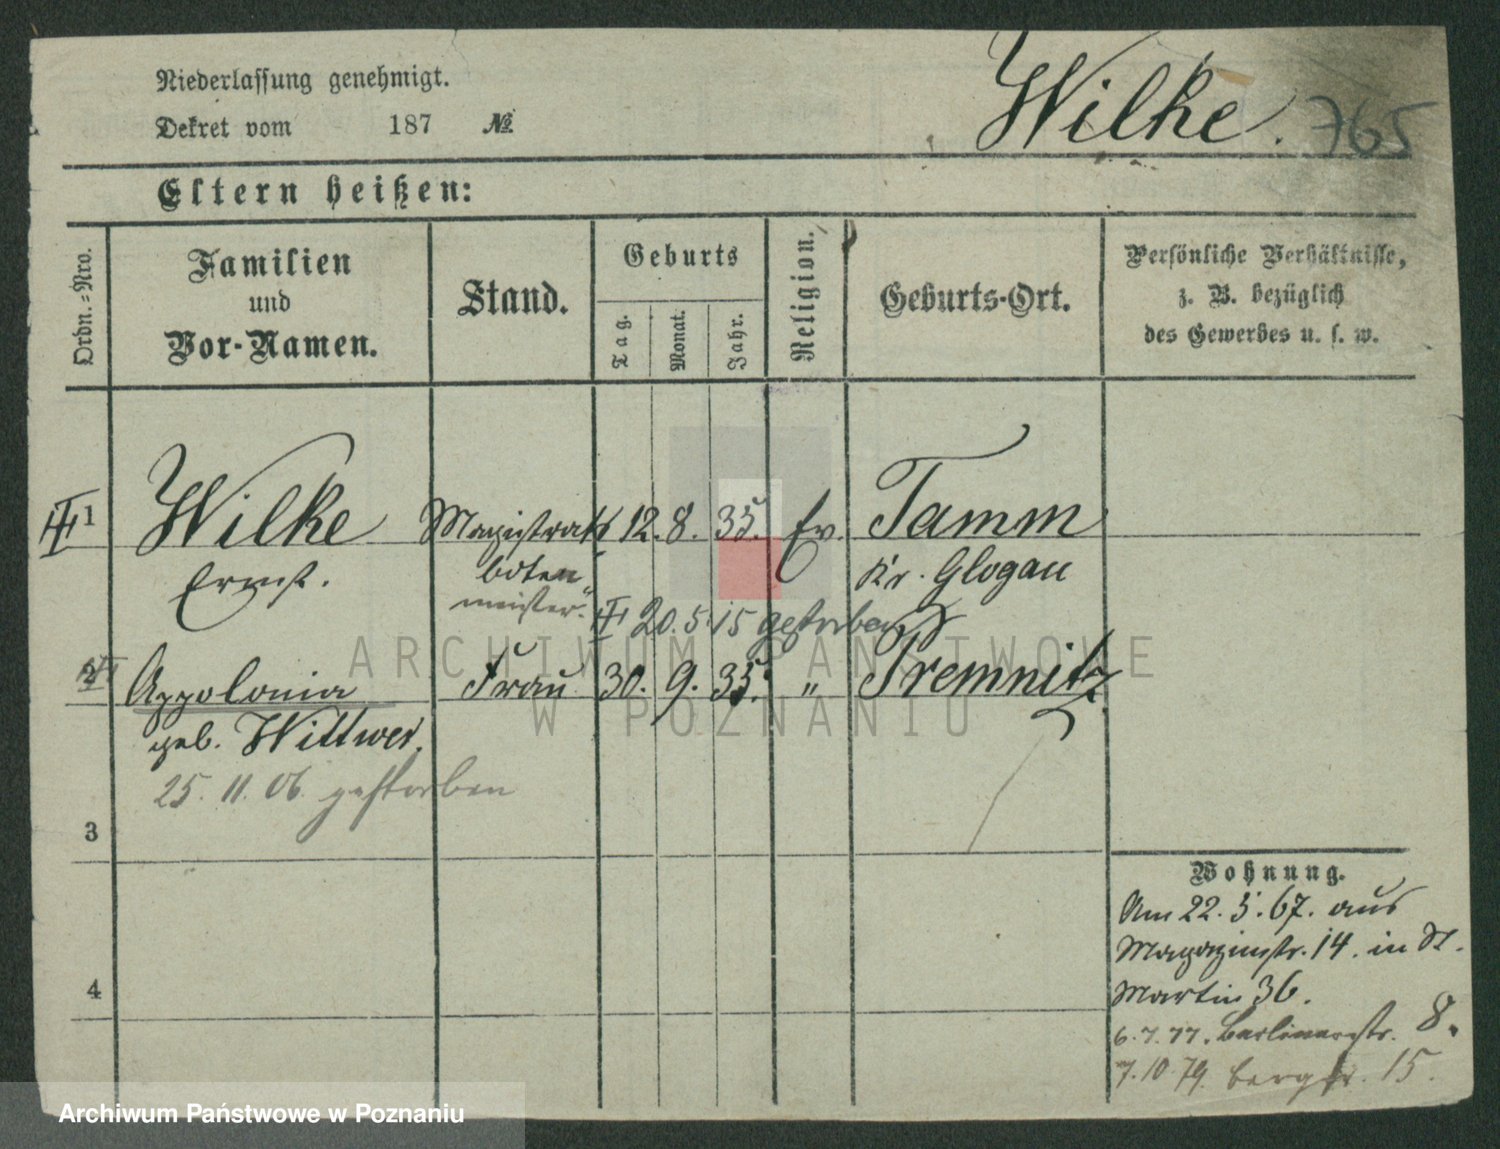 Niederlassung genehmigt.
Dekret vom 187 №
Wilke. 765
Eltern heißen:
Ordn.=Nro.
Familien
und
Vor-Namen.
Stand.
Geburts
Tag.
Monat.
Jahr.
Religion.
Geburts-Ort.
Persönliche Verhältnisse,
z. B. bezüglich
des Gewerbes u. s. w.
1 Wilke Magistrats 12. 8. 35. Ev. Tamm
Ernst. boten Kr. Glogau
meister.
20. 5. 15 gestorben
2 Appolonia Frau 30. 9. 35. " Premnitz
geb. Wittwer.
25. 11. 06. gestorben
3
4
Wohnung.
Am 22. 5. 67. aus
Magazinstr. 14. in St.
Martin 36.
6. 7. 77. Berlinerstr. 8.
7. 10. 79. Bergstr. 15.
ARCHIWUM PAŃSTWOWE
W POZNANIU
Archiwum Państwowe w Poznaniu